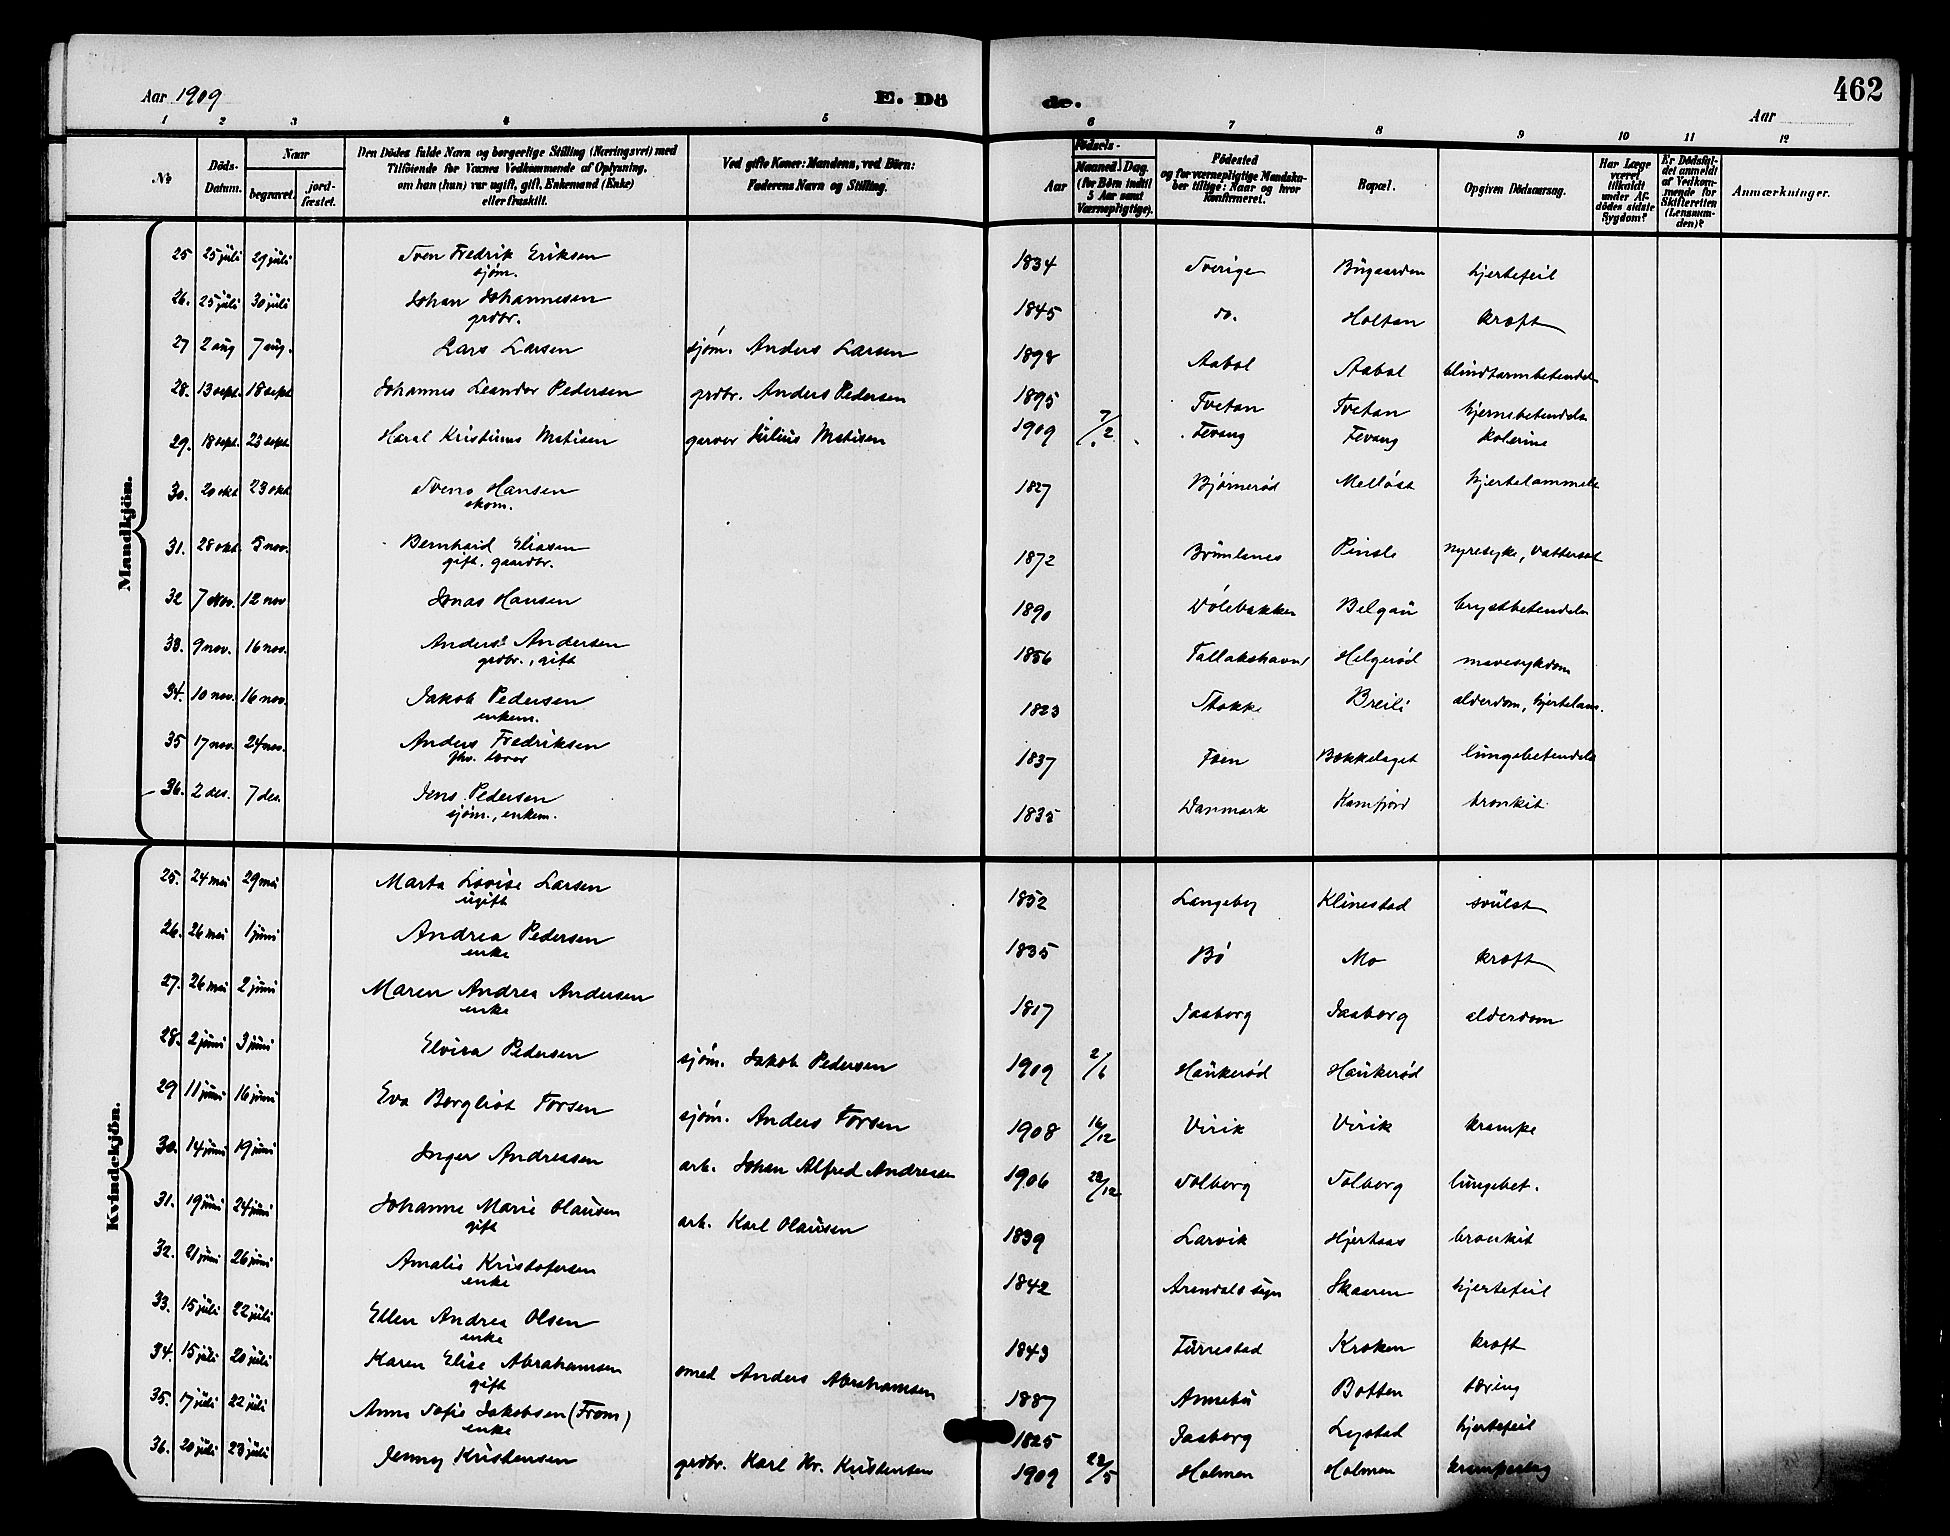 Aar 1909 E. Dö de. Aar 462
1 2 3 4 5 6 7 8 9 10 11 12
No
Döds-Datum.
Naar begravet. jord-fæstet.
Den Dödes fulde Navn og borgerlige Stilling (Næringsvei) med
Tilföiende for Voxnes Vedkommende af Oplysning,
om han (hun) var ugift, gift, Enkemand (Enke)
eller fraskilt.
Ved gifte Koner: Mandens, ved Börn:
Faderens Navn og Stilling.
Födsels-
Aar Maaned. Dag.
(for Börn indtil
5 Aar samt
Værnepligtige).
Födested
og for værnepligtige Mandska-
ber tillige: Naar og hvor
konfirmeret.
Bopæl.
Opgiven Dödsaarsag.
Har Læge
været
tilkaldt
under Af-
dödes sidste
Sygdom?
Er Dödsfal-
det anmeldt
af Vedkom-
mende for
Skifteretten
(Lensman-
den)?
Anmærkninger.
Mandkjön.
25 25 juli 29 juli Sven Fredrik Eriksen 1834 Sverige Bugaarden hjertefeil
sjøm.
26. 25 juli 30 juli Johan Johannesen 1845 do. Holtan kræft
grdbr.
27 2 aug 7 aug. Lars Larsen sjøm. Anders Larsen 1898 Aabol Aabol blindtarmbetendels
28. 13 sept. 18 sept Johannes Leander Pedersen grdbr. Anders Pedersen 1895 Tvetan Tvetan hjernebetendels
29. 18 sept. 23 sept. Haral Kristinus Matisen garver Julius Matisen 1909 7/2 Fevang Fevang kolerine
30. 20 okt 23 okt. Sveno Hansen 1827 Bjørnerød Melløst hjertelammels
skom.
31. 28 okt. 5 nov. Bernhard Eliasen 1872 Brunlanes Pinsle nyresyke, vattersot
gift, gaardbr.
32 7 nov. 12 nov Jonas Hansen 1890 Dølebakken Belgau brystbetendels
33. 9 nov. 16 nov. Anders Andersen 1856 Tallakshavn Helgerød mavesykdom
grdbr., gift
34. 10 nov. 16 nov. Jakob Pedersen 1823 Stokke Breili alderdom, hjertelam.
enkem.
35 17 nov. 24 nov. Anders Fredriksen 1837 Foen Bækkelaget lungebetendels
fhv. lærer
36. 2 des. 7 des. Jens Pedersen 1835 Danmark Kamfjord bronkit
sjøm., enkem.
Kvindekjön.
25. 24 mai 29 mai Marta Lovise Larsen 1852 Langeby Klinestad svulst
ugift
26. 26 mai 1 juni Andrea Pedersen 1835 Bø Mo kræft
enke
27. 26 mai 2 juni Maren Andrea Andersen 1817 Jaaborg Jaaborg alderdom
enke
28. 2 juni 3 juni Elvira Pedersen sjøm. Jakob Pedersen 1909 2/6 Haukerød Haukerød
29 11 juni 16 juni Eva Bergliot Torsen sjøm. Anders Torsen 1908 16/12 Virik Virik krampe
30. 14 juni 19 juni Inger Andreasen arb. Johan Alfred Andreasen 1906 22/12 Solberg Solberg lungebet.
31. 19 juni 24 juni Johanne Marie Olausen arb. Karl Olausen 1839 Larvik Hjertaas bronkit
gift
32. 21 juni 26 juni Amalie Kristofersen 1842 Arendals sogn Skaaren hjertefeil
enke
33. 15 juli 22 juli Ellen Andrea Olsen 1843 Furrestad Kroken kræft
enke
34. 15 juli 20 juli Karen Elise Abrahamsen smed Anders Abrahamsen 1887 Anneli Botten tæring
gift
35. 17 juli 22 juli Anne Sofie Jakobsen (From) 1825 Jaaborg Lystad hjertefeil
enke
36. 20 juli 23 juli Jenny Kristensen grdbr. Karl Kr. Kristensen 1909 22/5 Holmen Holmen